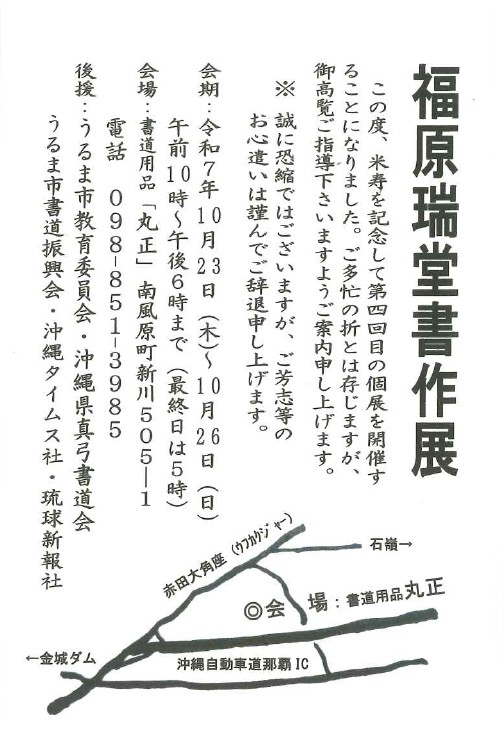 福原瑞堂書作展
この度、米寿を記念して第四回目の個展を開催す
ることになりました。ご多忙の折とは存じますが、
御高覧ご指導下さいますようご案内申し上げます。
※ 誠に恐縮ではございますが、ご芳志等の
お心遣いは謹んでご辞退申し上げます。
会期：令和7年10月23日（木）～10月26日（日）
午前10時～午後6時まで（最終日は5時）
会場：書道用品「丸正」南風原町新川505―1
電話 098-851-3985
後援：うるま市教育委員会・沖縄県真弓書道会
うるま市書道振興会・沖縄タイムス社・琉球新報社
赤田大角座（ウフカクジャー）
石嶺→
◎会 場：書道用品丸正
←金城ダム
沖縄自動車道那覇IC